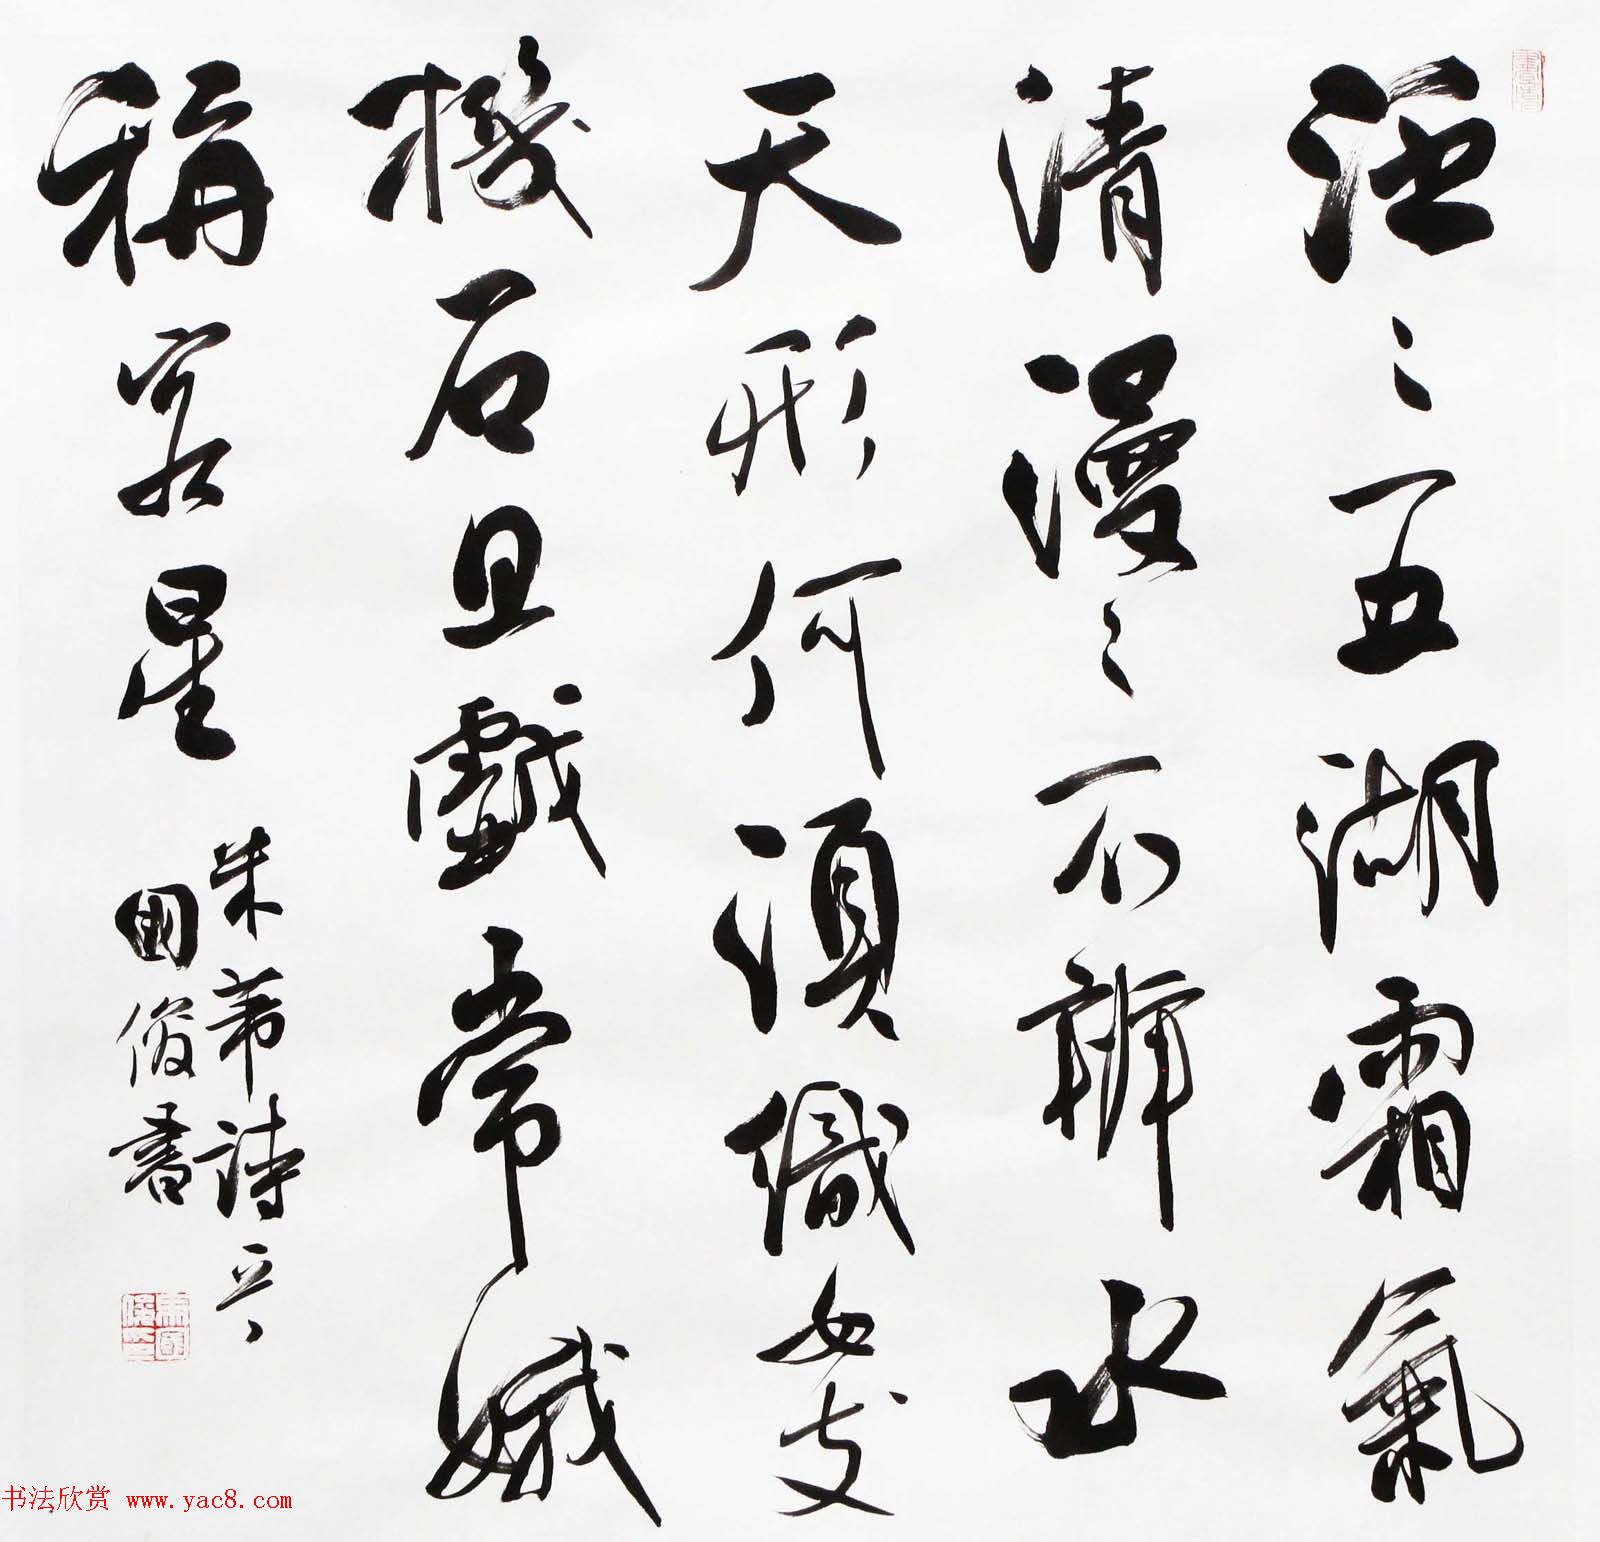 泛〻五湖霜氣
清漫〻不辨水
天形何須織女支
機石且戲常娥
稱客星
米芾詩
國俊書
书法欣赏 www.yac8.com